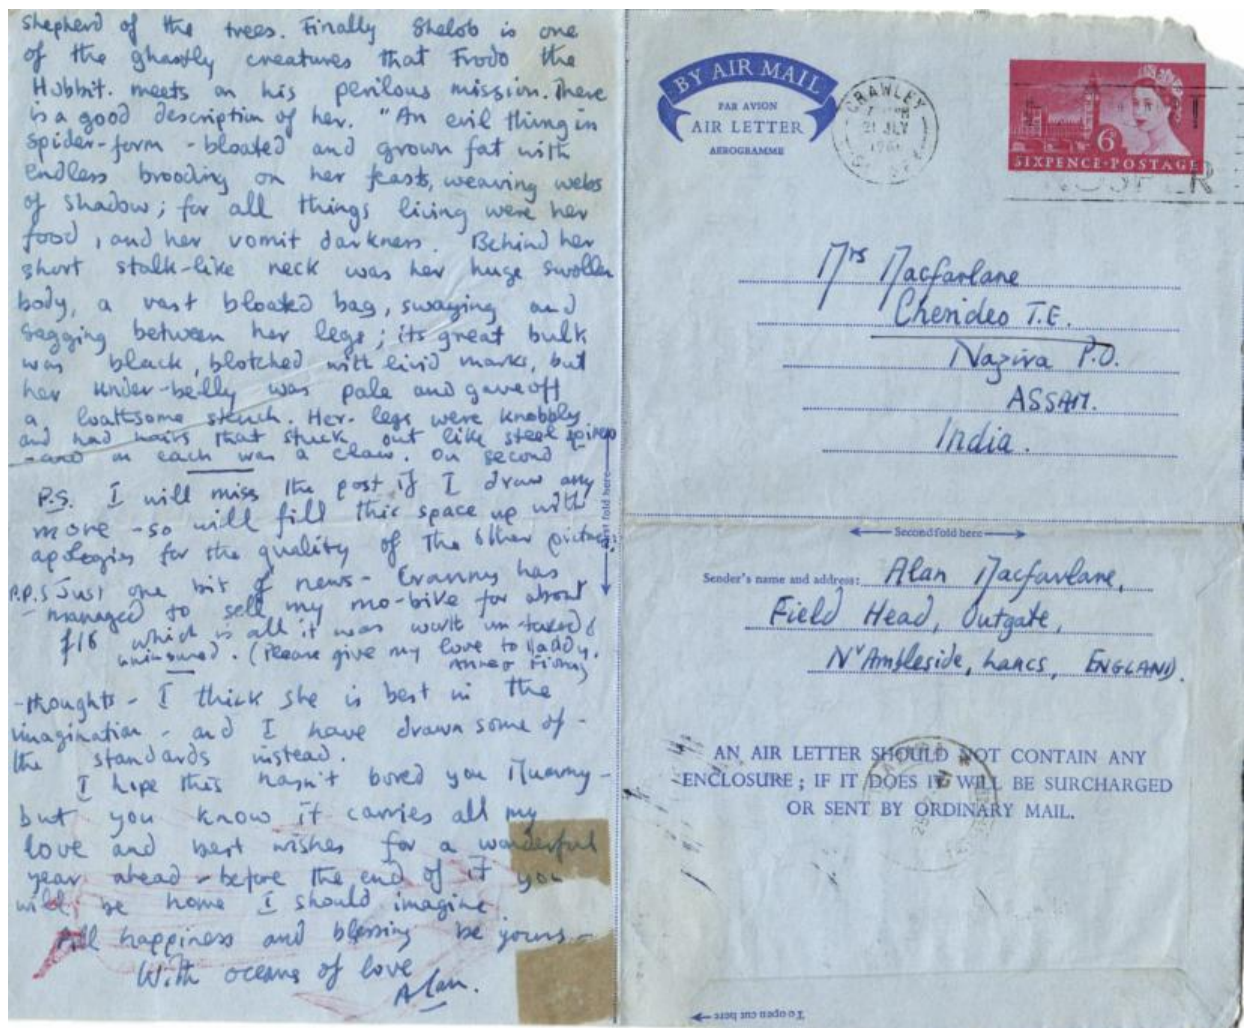 shepherd of the trees. Finally Shelob is one
of the ghastly creatures that Frodo the
Hobbit. meets on his perilous mission. There
is a good description of her. "An evil thing in
spider-form - bloated and grown fat with
endless brooding on her feasts, weaving webs
of shadow; for all things living were her
food, and her vomit darkness. Behind her
short stalk-like neck was her huge swollen
body, a vast bloated bag, swaying and
sagging between her legs; its great bulk
was black, blotched with livid marks, but
her under-belly was pale and gave off
a loathsome stench. Her legs were knobbly
and had hairs that stuck out like steel spines
- and on each was a claw. On second
P.S. I will miss the post if I draw any
more - so will fill this space up with
apologies for the quality of the other pictures.
P.P.S Just one bit of news - Granny has
- managed to sell my mo-bike for about
£16 which is all it was worth un-taxed &
uninsured. (Please give my love to Daddy,
Anne & Fiona)
- thoughts - I think she is best in the
imagination - and I have drawn some of -
the standards instead.
I hope this hasn't bored you Mummy -
but you know it carries all my
love and best wishes for a wonderful
year ahead - before the end of it you
will be home I should imagine
All happiness and blessing be yours -
With oceans of love
Alan.
First fold here
BY AIR MAIL
PAR AVION
AIR LETTER
AEROGRAMME
CRAWLEY
21 JLY
1961
6D
SIXPENCE·POSTAGE
Mrs Macfarlane
Cherideo T.E.
Nazira P.O.
ASSAM.
India.
Second fold here
Sender's name and address: Alan Macfarlane,
Field Head, Outgate,
Nr Ambleside, Lancs, ENGLAND.
AN AIR LETTER SHOULD NOT CONTAIN ANY
ENCLOSURE; IF IT DOES IT WILL BE SURCHARGED
OR SENT BY ORDINARY MAIL.
To open cut here